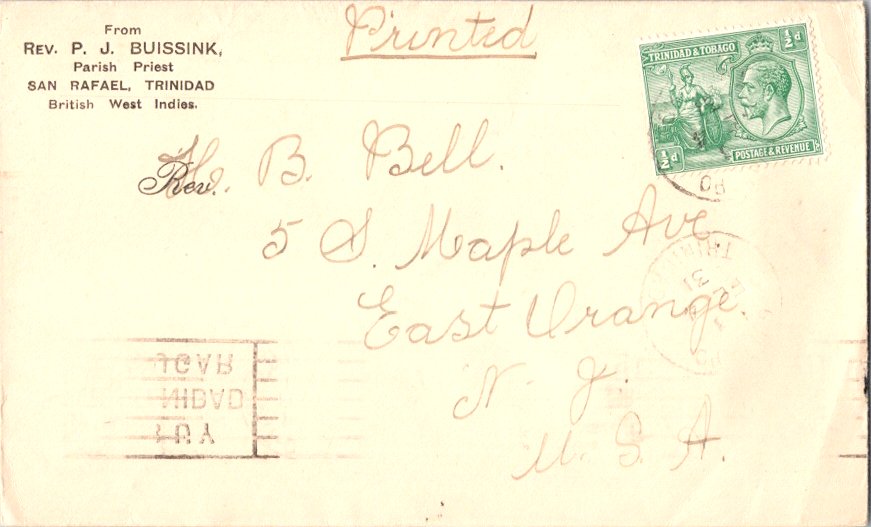 From
REV. P. J. BUISSINK,
Parish Priest
SAN RAFAEL, TRINIDAD
British West Indies.
Printed
TRINIDAD & TOBAGO ½d
½d POSTAGE & REVENUE
Rev. B. Bell.
5 S. Maple Ave
East Orange.
N. J.
U. S. A.
UGAR
NIDAD
BUY